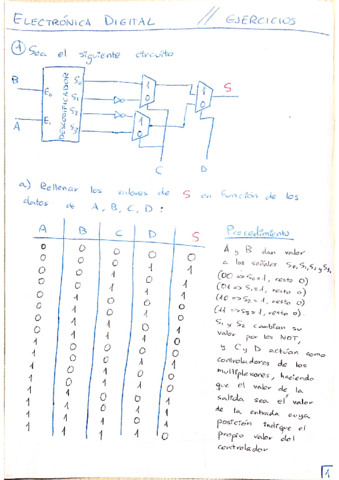 ELECTRÓNICA DIGITAL // EJERCICIOS
① Sea el siguiente circuito
B
A
E₀
E₁
DECODIFICADOR
S₀
S₁
S₂
S₃
1
0
1
0
1
0
S
C D
a) Rellenar los valores de S en función de los
datos de A, B, C, D:
A B C D S
0 0 0 0
0 0 0 1
0 0 1 0
0 0 1 1
0 1 0 0
0 1 0 1
0 1 1 0
0 1 1 1
1 0 0 0
1 0 0 1
1 0 1 0
1 0 1 1
1 1 0 0
1 1 0 1
1 1 1 0
1 1 1 1
Procedimiento
A y B dan valor
a las señales S₀, S₁, S₂ y S₃
(00 => S₀=1, resto 0)
(01 => S₁=1, resto 0)
(10 => S₂=1, resto 0)
(11 => S₃=1, resto 0).
S₁ y S₂ cambian su
valor por los NOT,
y C y D actúan como
controladores de los
multiplexores, haciendo
que el valor de la
salida sea el valor
de la entrada cuya
posición indique el
propio valor del
controlador
1